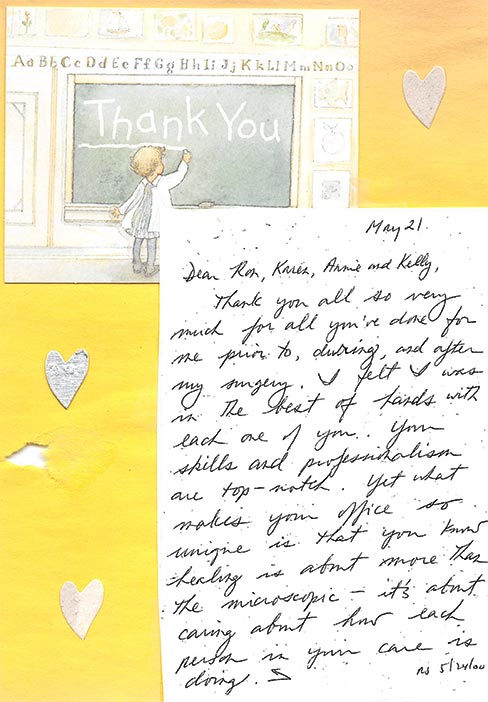 Aa Bb Cc Dd Ee Ff Gg Hh Ii Jj Kk Ll Mm Nn Oo
Thank You
May 21.
Dear Ron, Karen, Annie and Kelly,
Thank you all so very
much for all you've done for
me prior to, during, and after
my surgery. I felt I was
in the best of hands with
each one of you. Your
skills and professionalism
are top-notch. Yet what
makes your office so
unique is that you know
healing is about more than
the microscopic – it's about
caring about how each
person in your care is
doing.
5/24/00